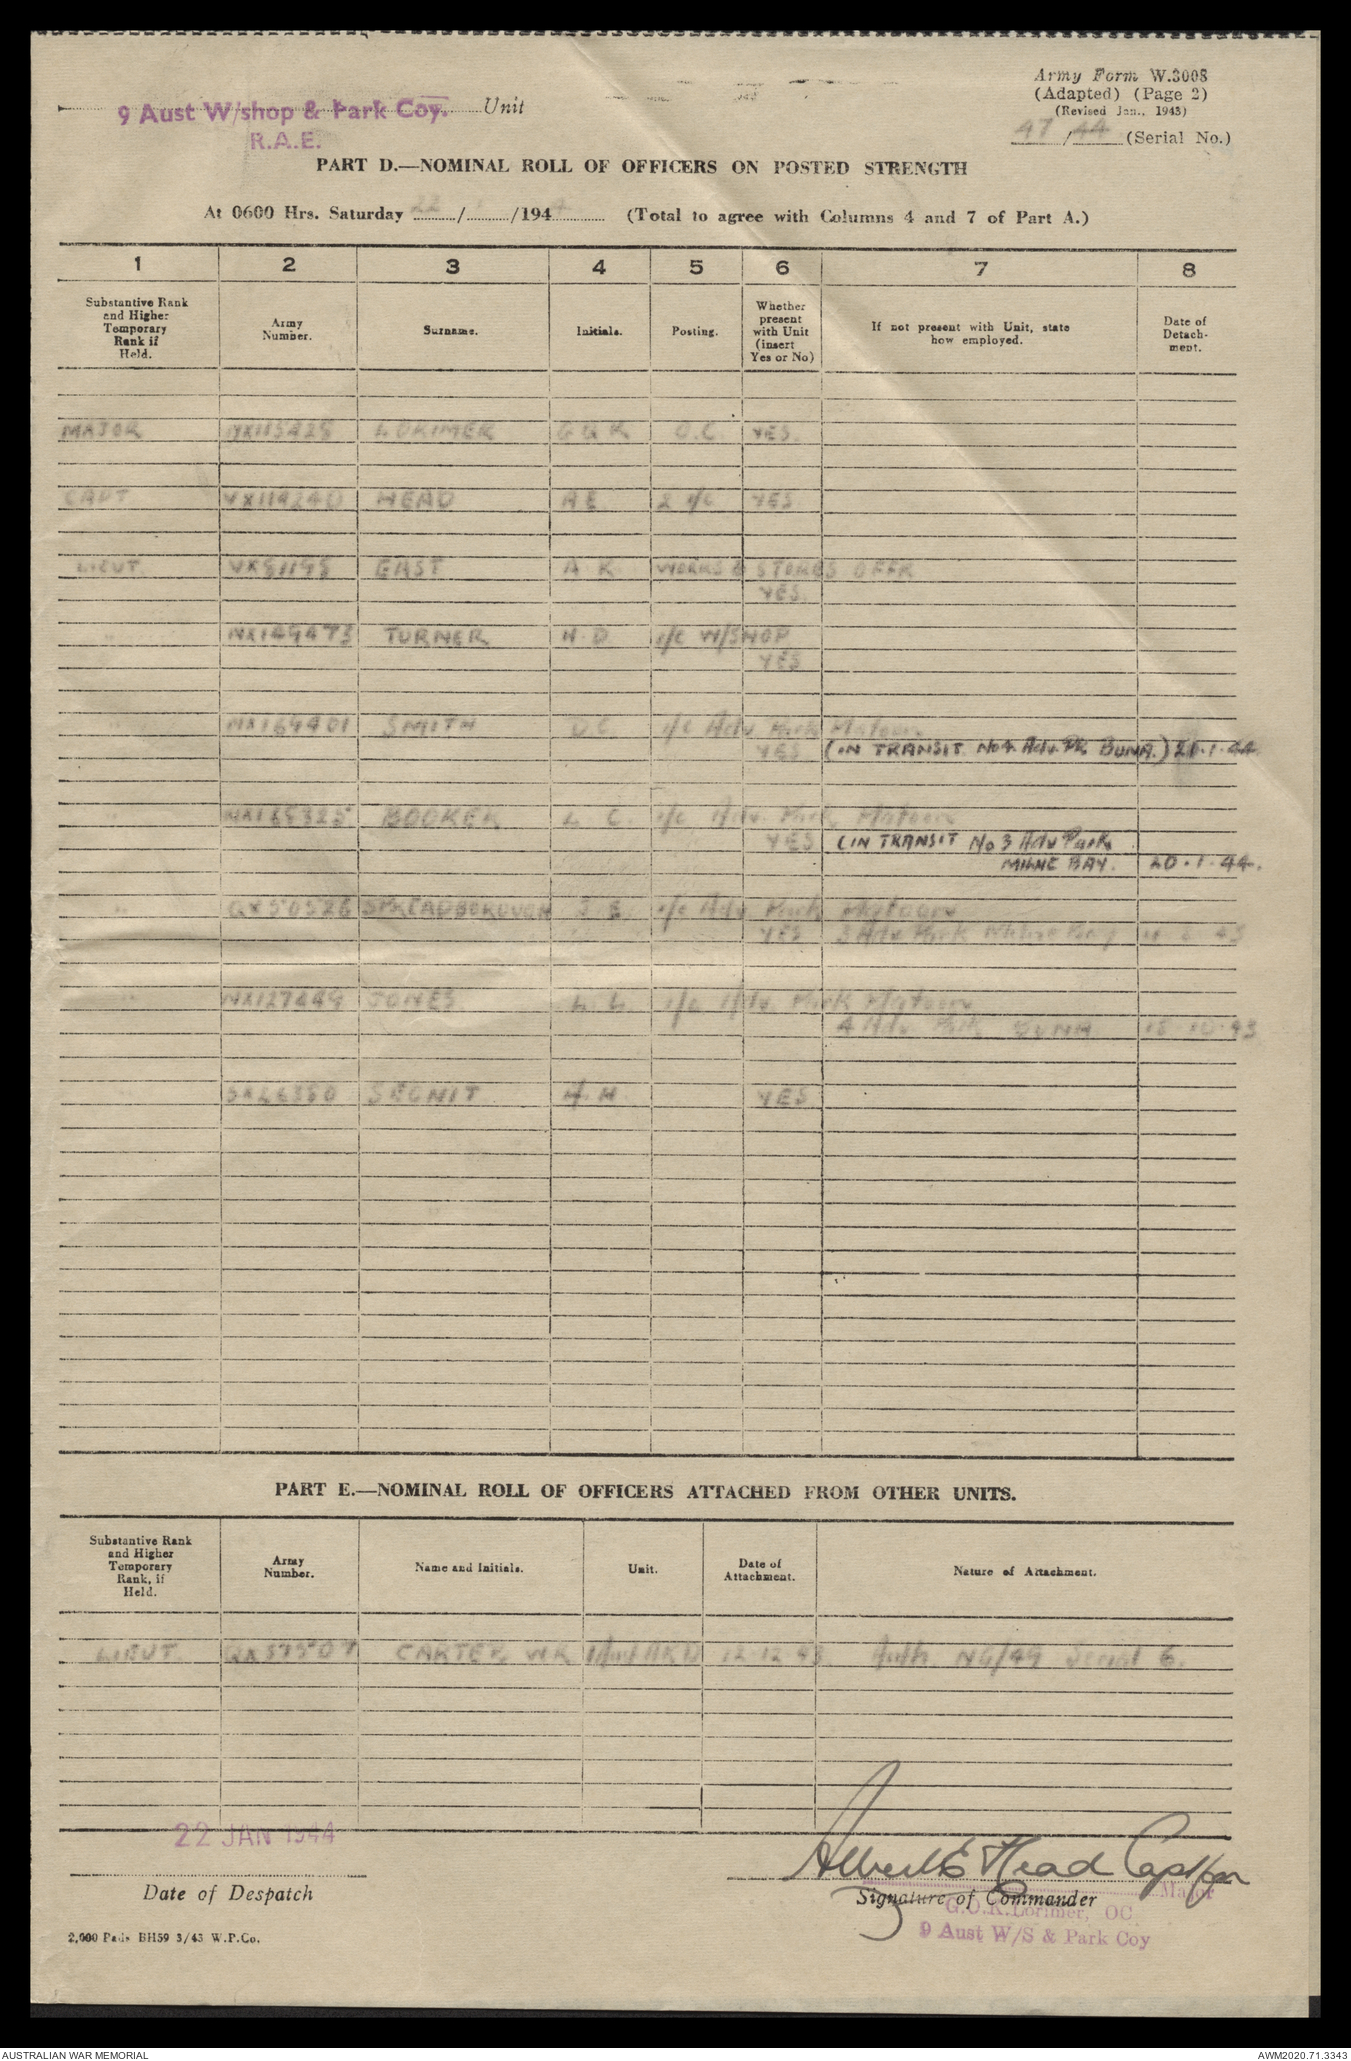 9 Aust W/shop & Park Coy. Unit
R.A.E.
Army Form W.3008
(Adapted) (Page 2)
(Revised Jan., 1943)
47/44 (Serial No.)
PART D.—NOMINAL ROLL OF OFFICERS ON POSTED STRENGTH
At 0600 Hrs. Saturday 22/1/1944 (Total to agree with Columns 4 and 7 of Part A.)
1 2 3 4 5 6 7 8
Substantive Rank and Higher Temporary Rank if Held. Army Number. Surname. Initials. Posting. Whether present with Unit (insert Yes or No) If not present with Unit, state how employed. Date of Detachment.
MAJOR LORIMER O.C. YES.
CAPT VX114240 HEAD A E 2 i/c YES
LIEUT VX81195 EAST A K WORKS & STORES OFFR
YES.
" NX149473 TURNER H D i/c W/SHOP
YES
" NX164401 SMITH D C i/c Adv. Park Matoorv
YES (IN TRANSIT No4 Adv. Pk BUNA.) 21.1.44
" BOOKER L C. i/c Adv. Park
YES (IN TRANSIT No 3 Adv Park
MILNE BAY. 20.1.44.
" QX50526 SPREADBOROUGH J S i/c Adv Park
YES 3 Adv. Park Milne Bay
" NX127449 JONES L. L. i/c Adv. Park
4 Adv. Park BUNA 15.10.43
" SX26380 SEGNIT H. H. YES
PART E.—NOMINAL ROLL OF OFFICERS ATTACHED FROM OTHER UNITS.
Substantive Rank and Higher Temporary Rank, if Held. Army Number. Name and Initials. Unit. Date of Attachment. Nature of Attachment.
LIEUT. QX57507 CARTER, WR 12.12.43 Auth. NG/49 Serial 6.
22 JAN 1944
Albert E Head Capt for
Date of Despatch
Signature of Commander
Major
G.O.K. Lorimer, OC
9 Aust W/S & Park Coy
2,000 Pads BH59 3/43 W.P.Co.
AUSTRALIAN WAR MEMORIAL
AWM2020.71.3343